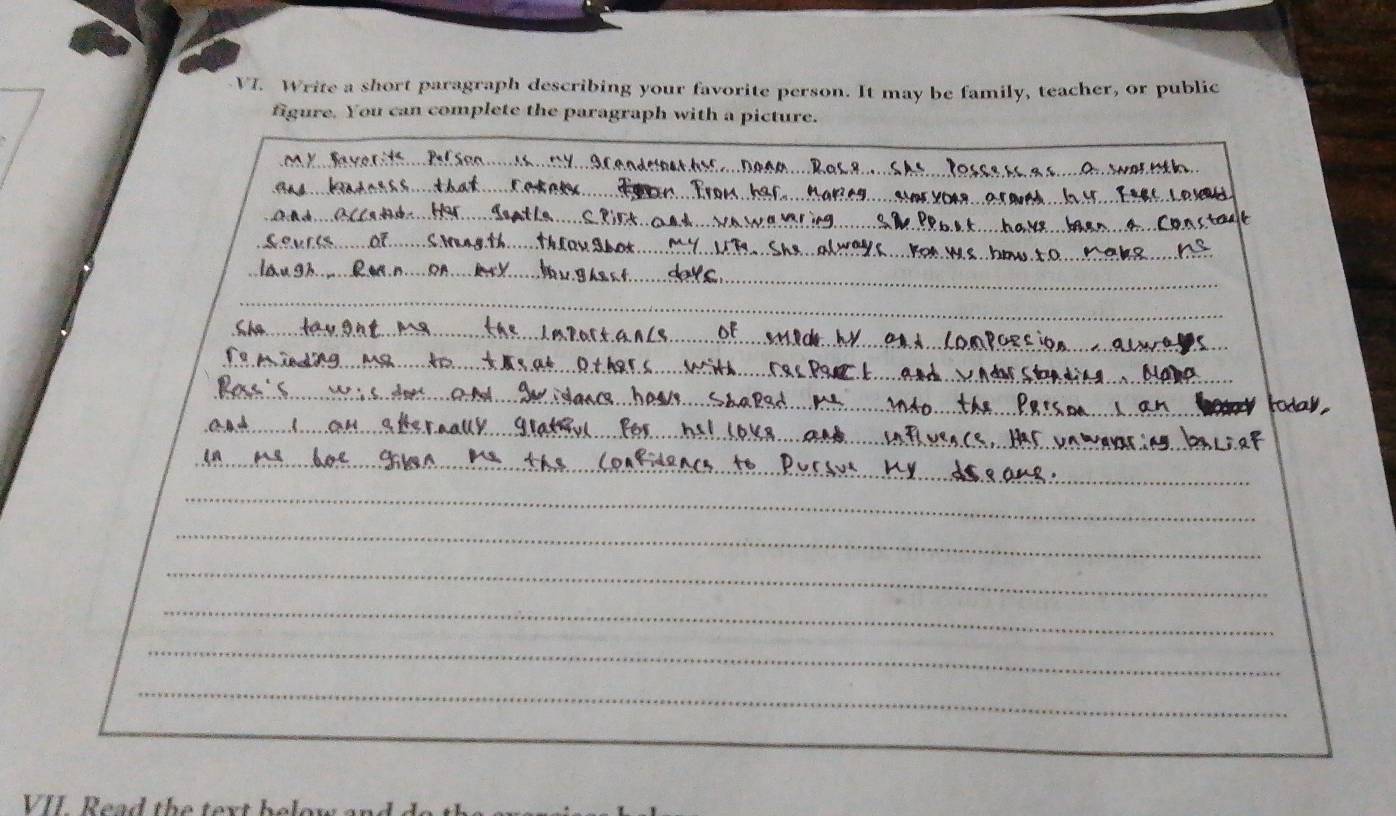 VI. Write a short paragraph describing your favorite person. It may be family, teacher, or public
figure. You can complete the paragraph with a picture.
My favorite Person is my grandmother, nana Rose. She Possesses a warmth
and kindness that From her. Making everyone around her Feel Loved
and accepted. Her gentle Spirit and unwavering support have been a constant
source of strength throughot my life. She always how to make me
laugh, on my days.
She taught me the importance of and compassion, always
reminding me to treat others with respect and understanding. Nana
Rose's wisdom and guidance have shaped me into the Person I am today,
and I am grateful For her love and influence. Her unwavering belief
in me has given me the confidence to Pursue My
VII. Read the text below and do the